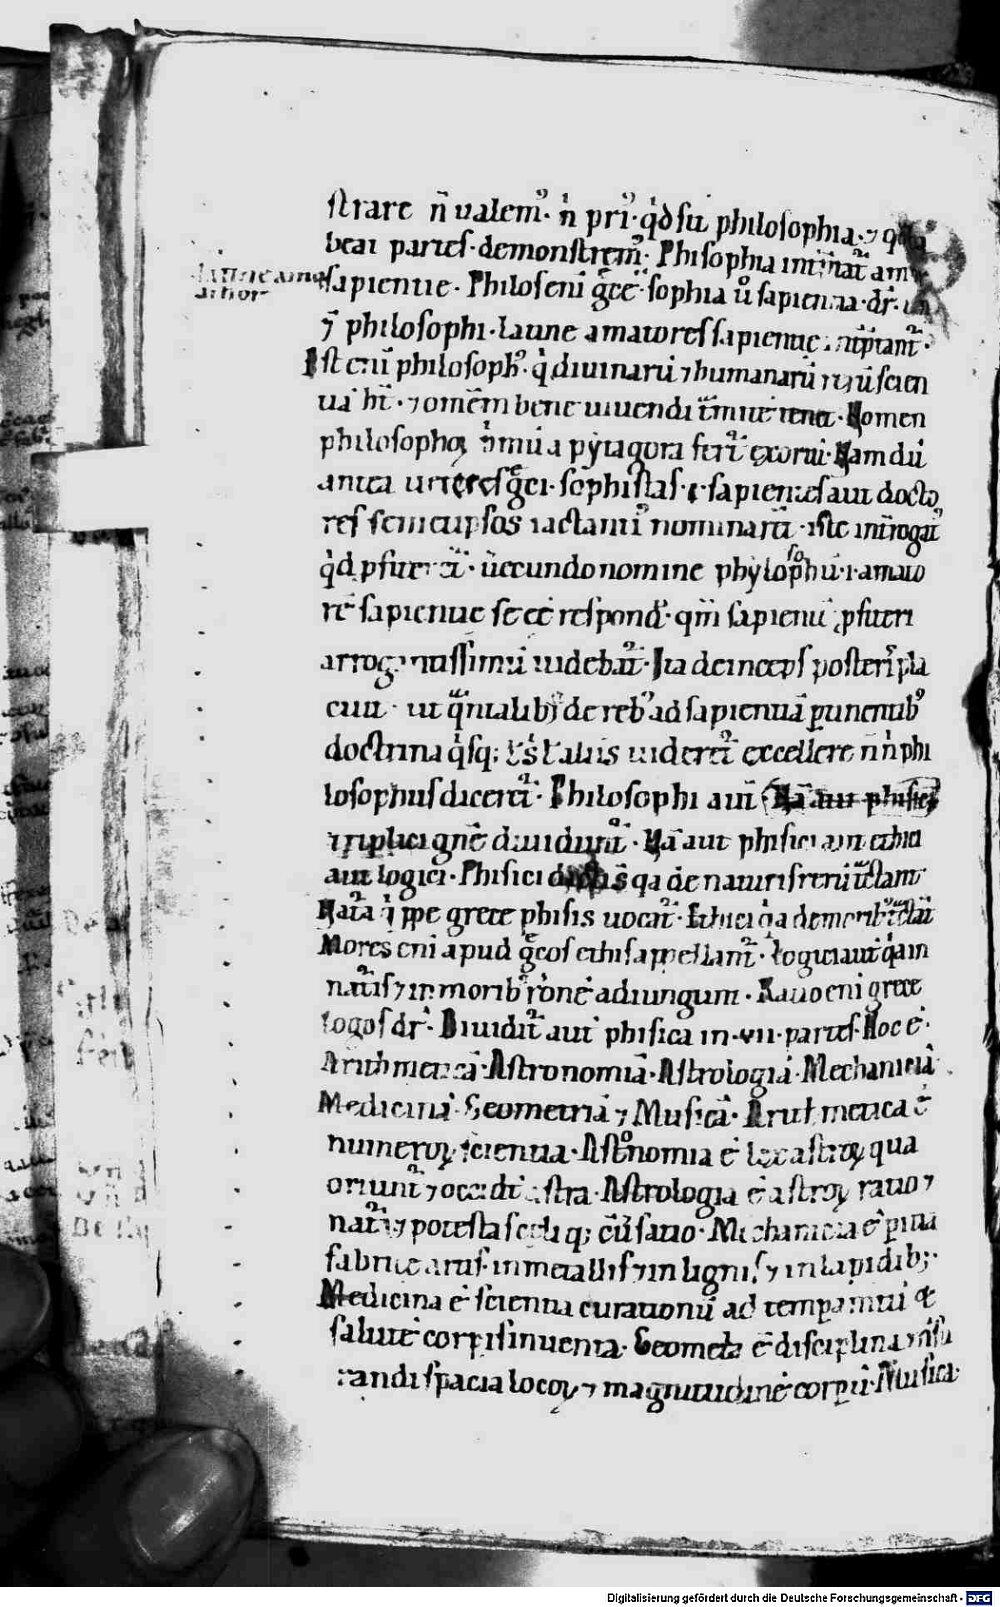 strare n̄ ualem᷒. n̄ pri᷒. qd̓ sit philosophia. ⁊ q
beat partes. demonstrem᷒. Phisophia int̄p̄tat᷑ am
latine amat
sapientie. Philosein gͤce. sophia u̓ sapientia. dr̄.
ꝫ philosophi. latine amatores sapientie int̄p̄tant᷑.
Ist eni philosoph᷒. q̇ diuinarū ⁊ humanarū rerū scien
tiā ht̄. ⁊ omēm bene uiuendi tramitē tenet. Nomen
philosophoꝝ p̓mitus a pytagora fert᷑ exortū. Nam dū
antea ueteres gͤci. sophistas. i. sapientes aut docto
res semetipsos iactanti᷒ nominarēt. iste int̄rogat᷒
qd̓ ꝓfiteret᷑. uerecundo nomine phylosophū. i. amato
rē sapientie se eē respond̓. qm̄ sapientē ꝓfiteri
arrogantissimū uidebat᷑. Ita deinceps posteris pla
cuit. ut quantalibꝫ de reb᷒ ad sapientiā ꝑtinentib᷒
doctrina q̇sqꝫ ł s̓ ł aliis uideret᷑ excellere n̄ n̓ phi
losophus diceret᷑. Philosophi aut̄. Nā aut phisici
triplici gn̄e diuidunt᷑. Nā aut phisici aut ethici
aut logici. Phisici dicti s̄ qa de naturis rerū tͣctant
Natᷓa q̓ppe grece phisis uocat᷑. Ethici qa de morib᷒ tͣctāt
Mores eni apud gͤcos ethis appellant᷑. Logici aut̄ qa in
nat᷑is ⁊ in morib᷒ rōnē adiungunt. Ratio eni grece
logos dr̄. Diuidit᷑ aut̄ phisica in .vii. partes. Hoc ē.
Arithmeticā. Astronomiā. Astrologiā. Mechaniciā.
Medicinā. Geometriā ⁊ Musicā. Arithmetica ē
numeroꝝ scientia. Ast᷒nomia ē lex astroꝝ qua
oriunt᷑ ⁊ occidt̄ astra. Astrologia ē astroꝝ ratio ⁊
nat᷑a ⁊ potestas celi qꝫ cūersatio. Mechanicia ē ꝑitia
fabrice artis. in metallis ⁊ in lignis ⁊ in lapidibꝫ.
Medicina ē scientia curationū ad temꝑamtū et
salutē corꝑis inuenta. Geometͣ ē disciplina mͤsu
randi spacia locoꝝ ⁊ magnitudinē corꝑū. Musica
Digitalisierung gefördert durch die Deutsche Forschungsgemeinschaft - DFG